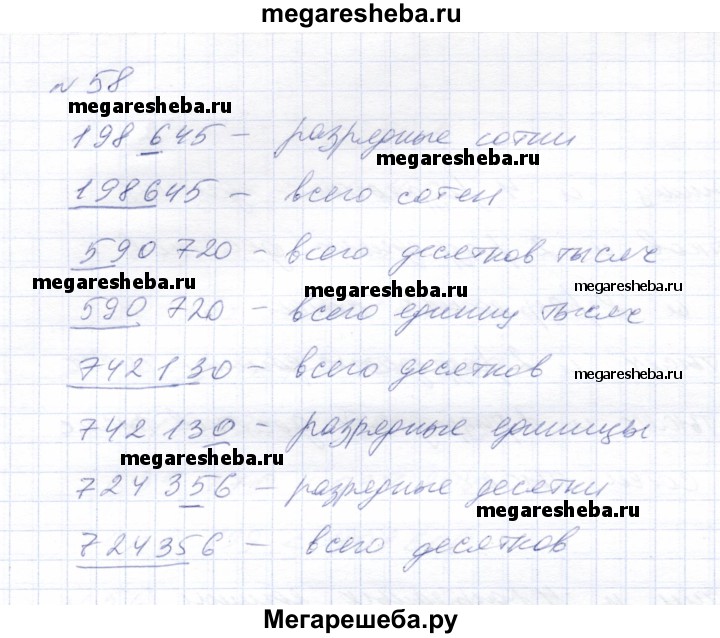 megaresheba.ru
№ 58
megaresheba.ru
198 645 – разрядные сотни
megaresheba.ru
198645 – всего сотен
590 720 – всего десятков тысяч
megaresheba.ru megaresheba.ru megaresheba.ru
590 720 – всего единиц тысяч
742130 – всего десятков
megaresheba.ru
742 130 – разрядные единицы
megaresheba.ru
724 356 – разрядные десятки
megaresheba.ru
724356 – всего десятков
Мегарешеба.ру